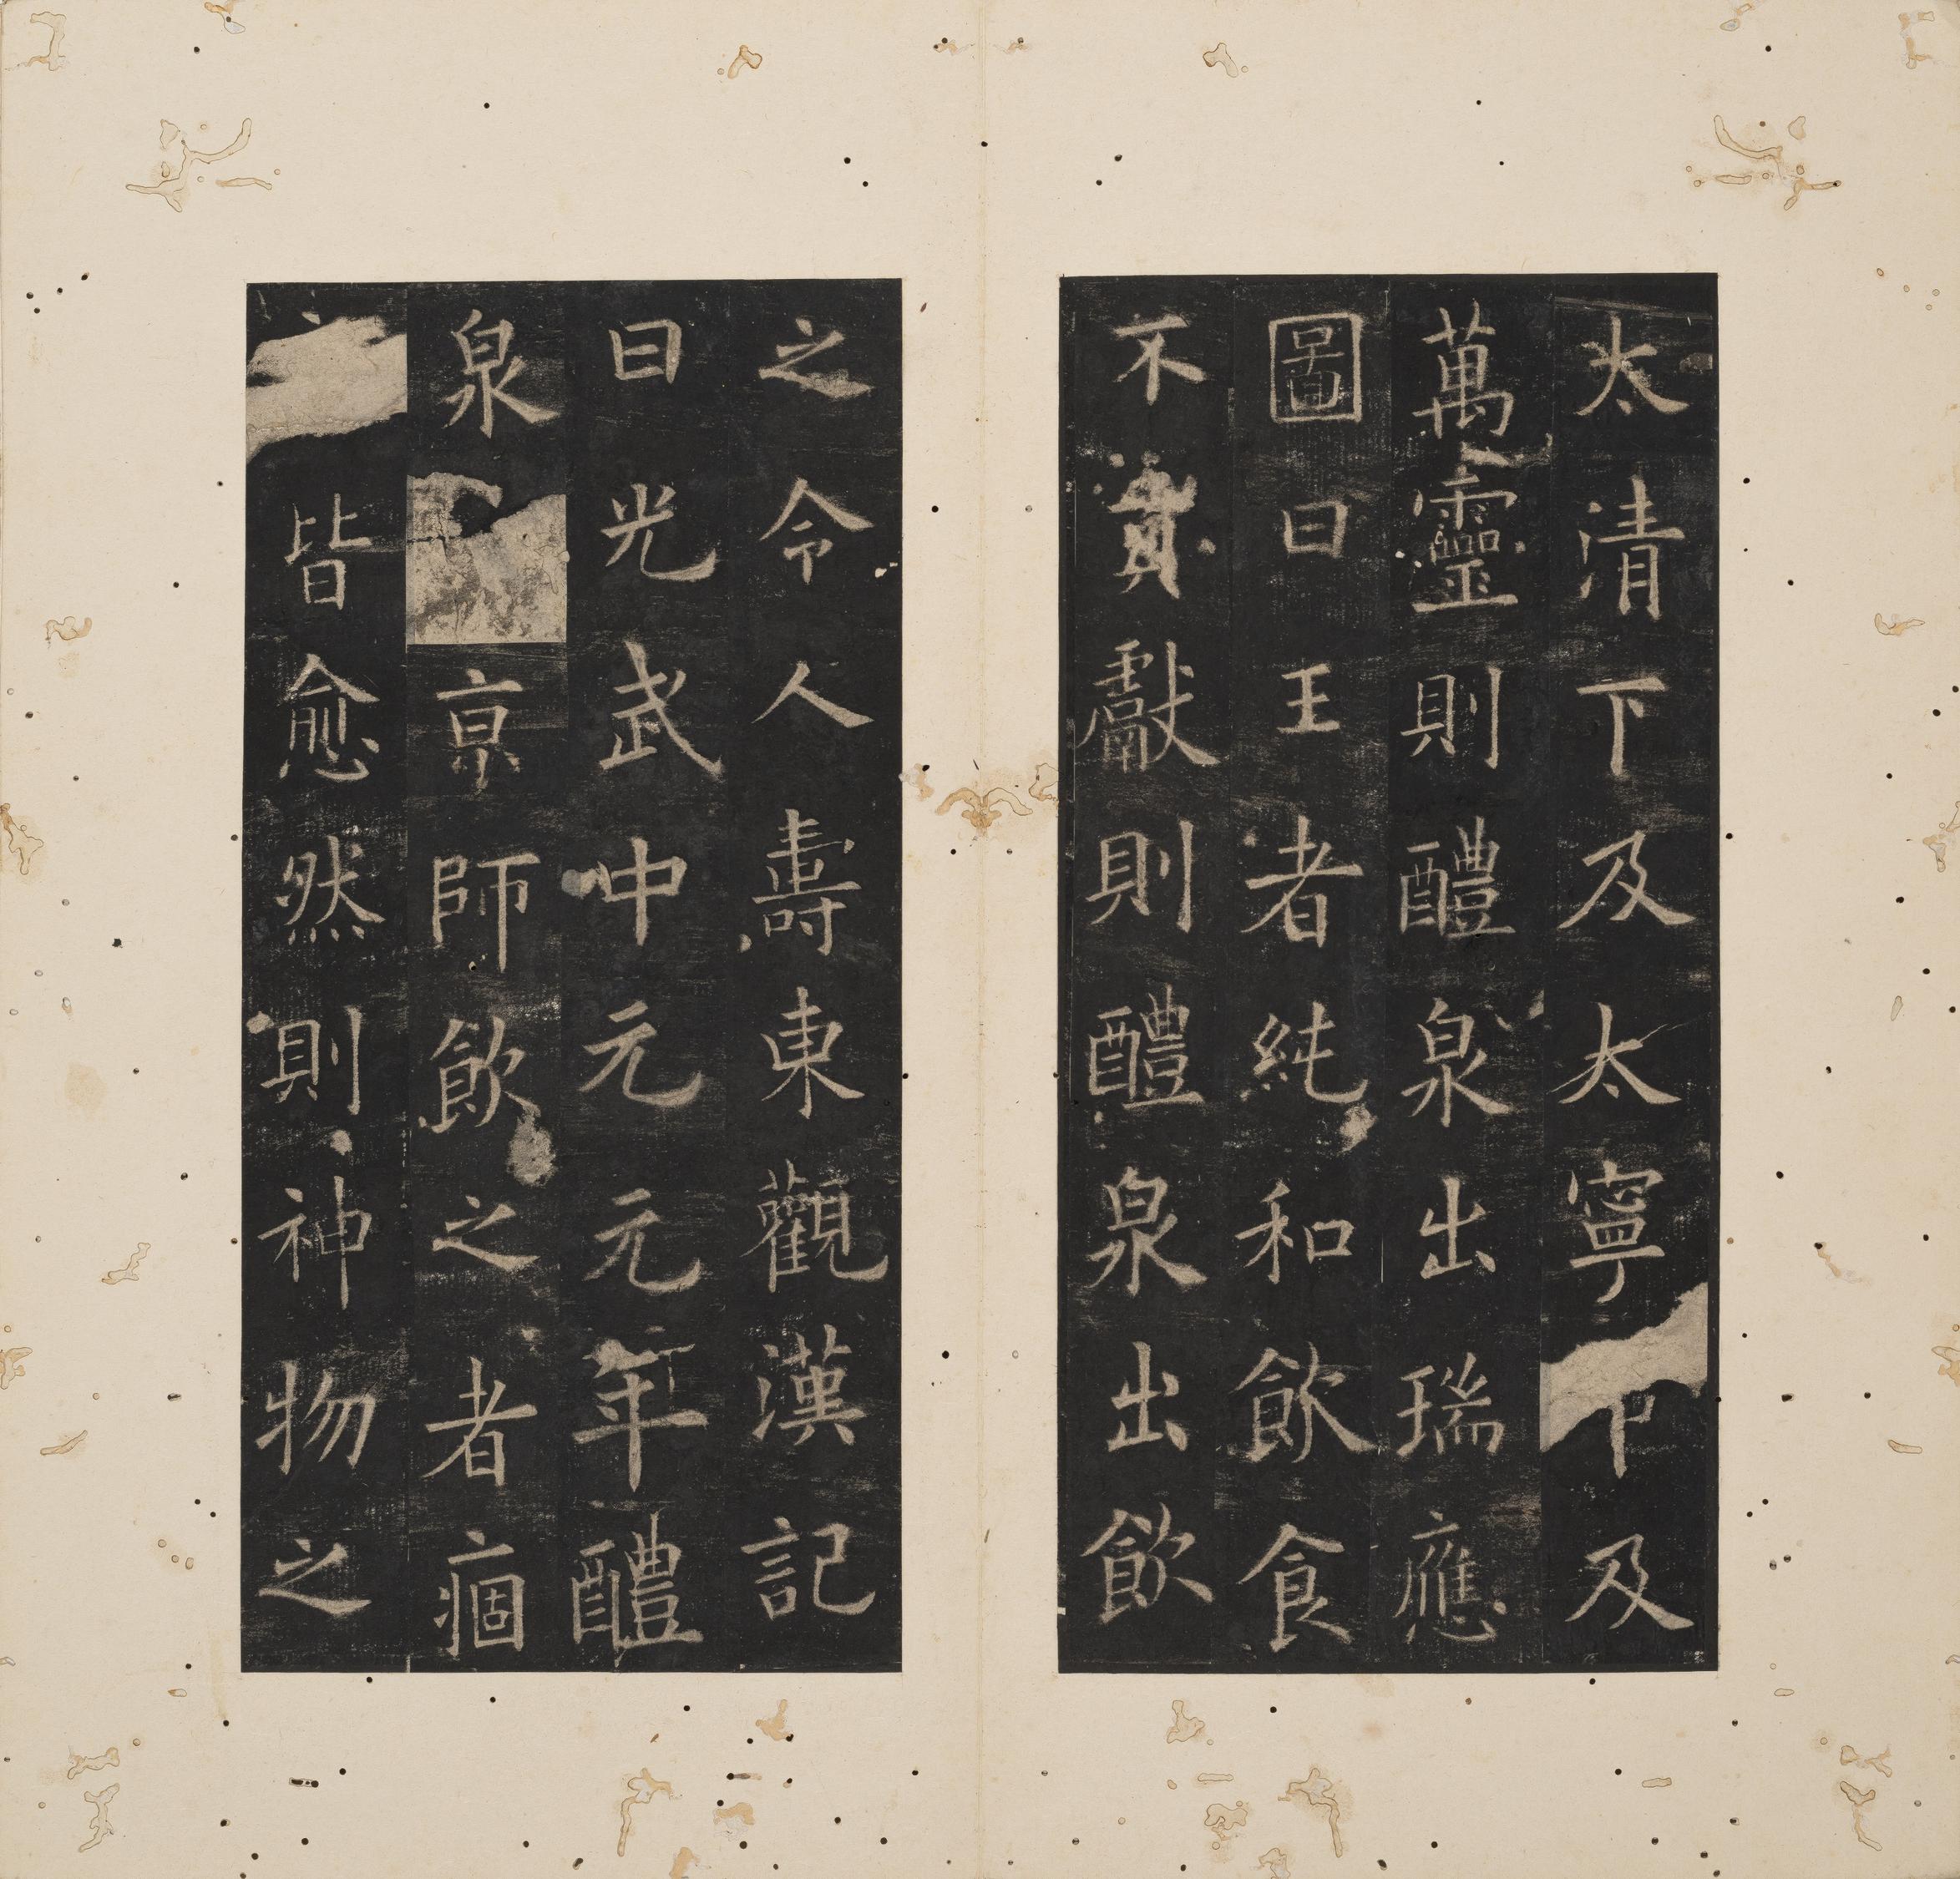 太清下及太寧中及
萬靈則醴泉出瑞應
圖曰王者純和飲食
不貢獻則醴泉出飲
之令人壽東觀漢記
曰光武中元元年醴
泉京師飲之者痼
皆愈然則神物之